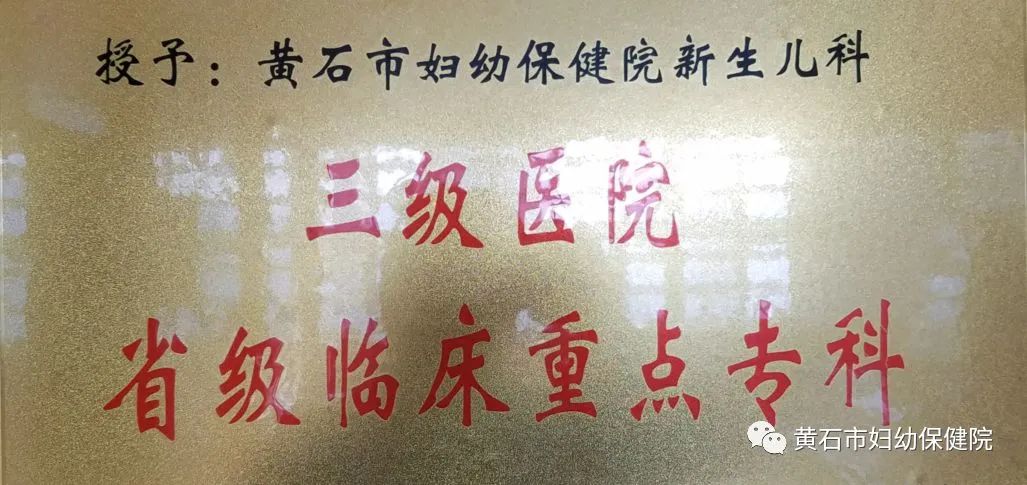 授予：黄石市妇幼保健院新生儿科
三级医院
省级临床重点专科
黄石市妇幼保健院